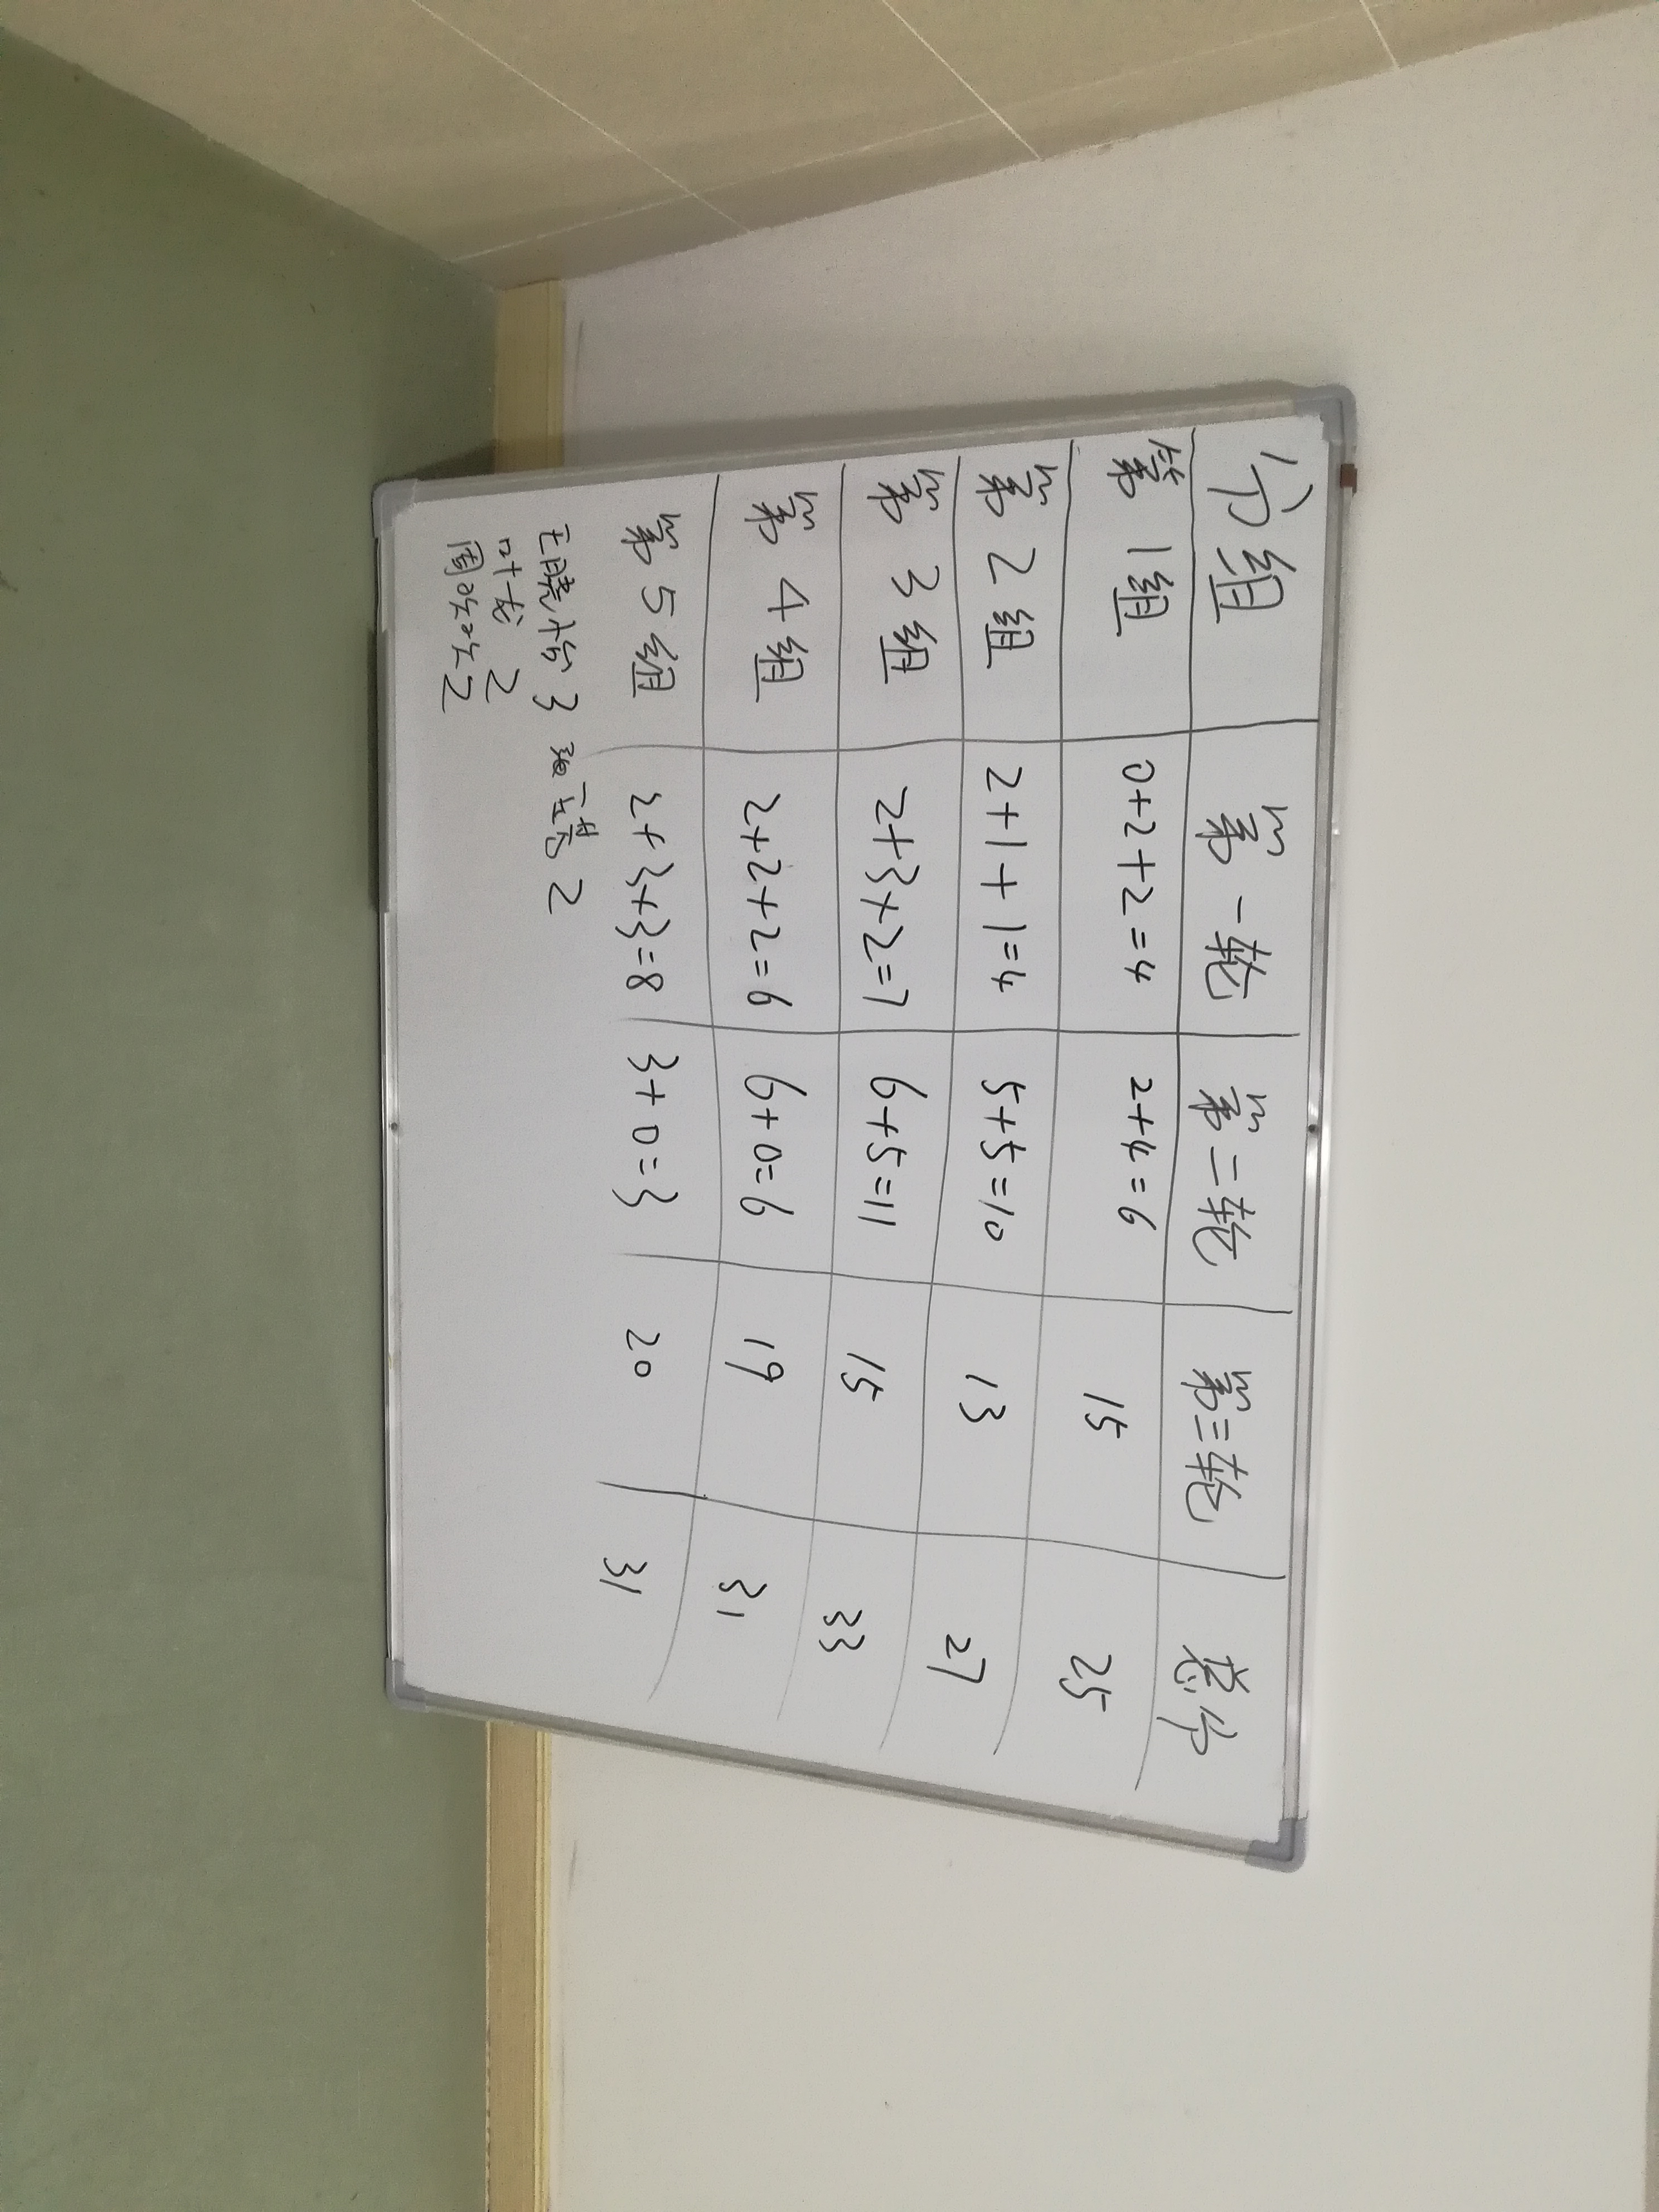 分组 第一轮 第二轮 第三轮 总分
第1组 0+2+2=4 2+4=6 15 25
第2组 2+1+1=4 5+5=10 13 27
第3组 2+3+2=7 6+5=11 15 33
第4组 2+2+2=6 6+0=6 19 31
第5组 2+3+3=8 3+0=3 20 31
王晓怡 3 2
叶龙 2
周欢欢 2